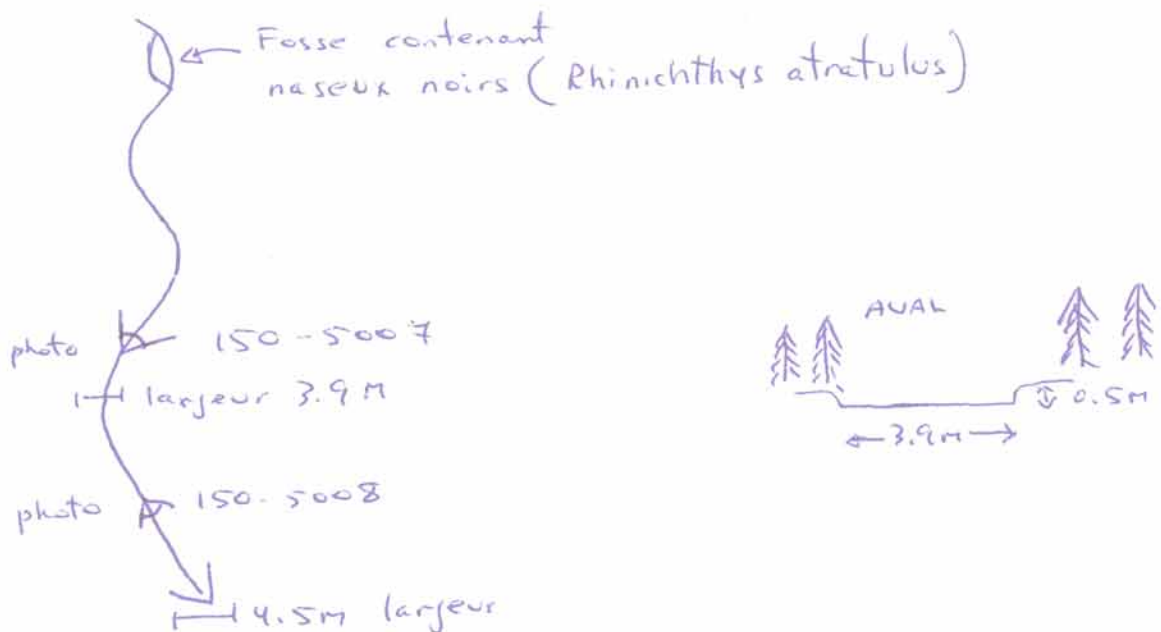 Fosse contenant
naseux noirs (Rhinichthys atratulus)
photo 150-5007
largeur 3.9 M
photo 150-5008
4.5m largeur
AVAL
0.5M
3.9m